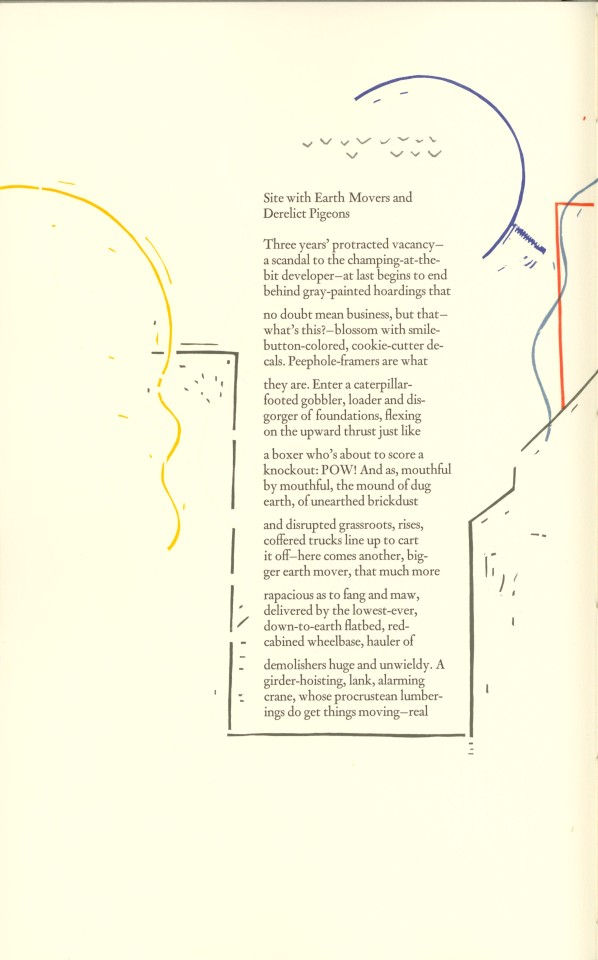 Site with Earth Movers and
Derelict Pigeons
Three years' protracted vacancy—
a scandal to the champing-at-the-
bit developer—at last begins to end
behind gray-painted hoardings that
no doubt mean business, but that—
what's this?—blossom with smile-
button-colored, cookie-cutter de-
cals. Peephole-framers are what
they are. Enter a caterpillar-
footed gobbler, loader and dis-
gorger of foundations, flexing
on the upward thrust just like
a boxer who's about to score a
knockout: POW! And as, mouthful
by mouthful, the mound of dug
earth, of unearthed brickdust
and disrupted grassroots, rises,
coffered trucks line up to cart
it off—here comes another, big-
ger earth mover, that much more
rapacious as to fang and maw,
delivered by the lowest-ever,
down-to-earth flatbed, red-
cabined wheelbase, hauler of
demolishers huge and unwieldy. A
girder-hoisting, lank, alarming
crane, whose procrustean lumber-
ings do get things moving—real